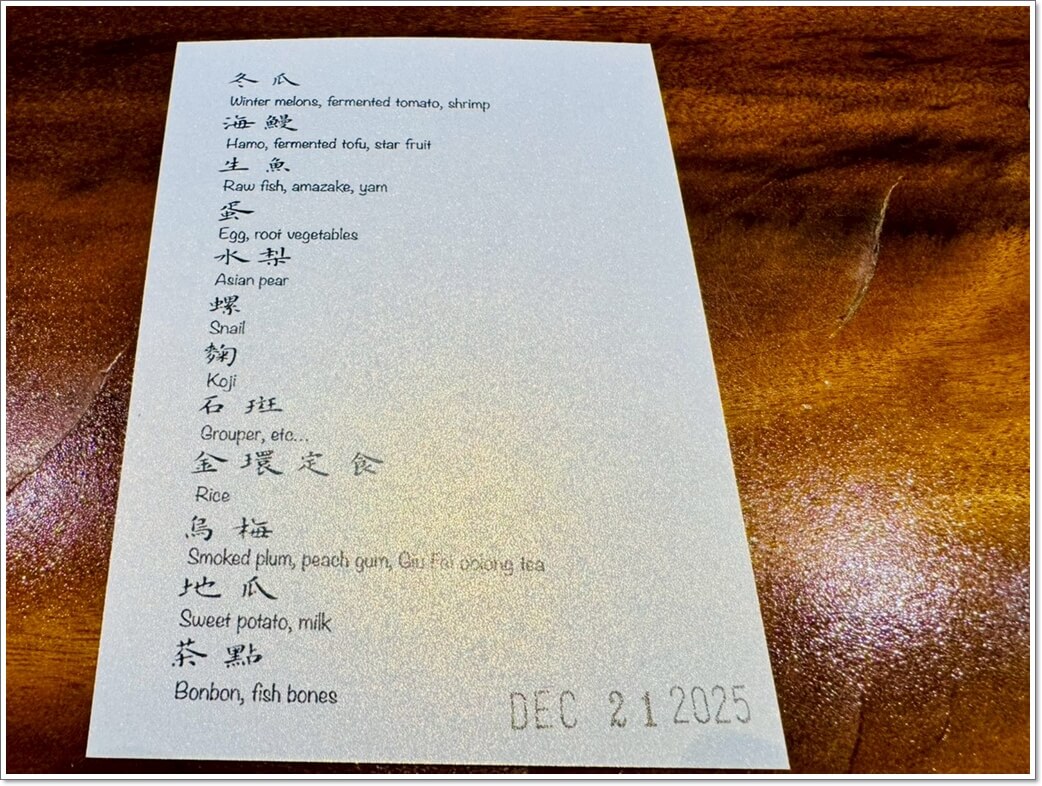 冬瓜
Winter melons, fermented tomato, shrimp
海鰻
Hamo, fermented tofu, star fruit
生魚
Raw fish, amazake, yam
蛋
Egg, root vegetables
水梨
Asian pear
螺
Snail
麴
Koji
石斑
Grouper, etc...
金環定食
Rice
烏梅
Smoked plum, peach gum, Giu Fai oolong tea
地瓜
Sweet potato, milk
茶點
Bonbon, fish bones
DEC 21 2025